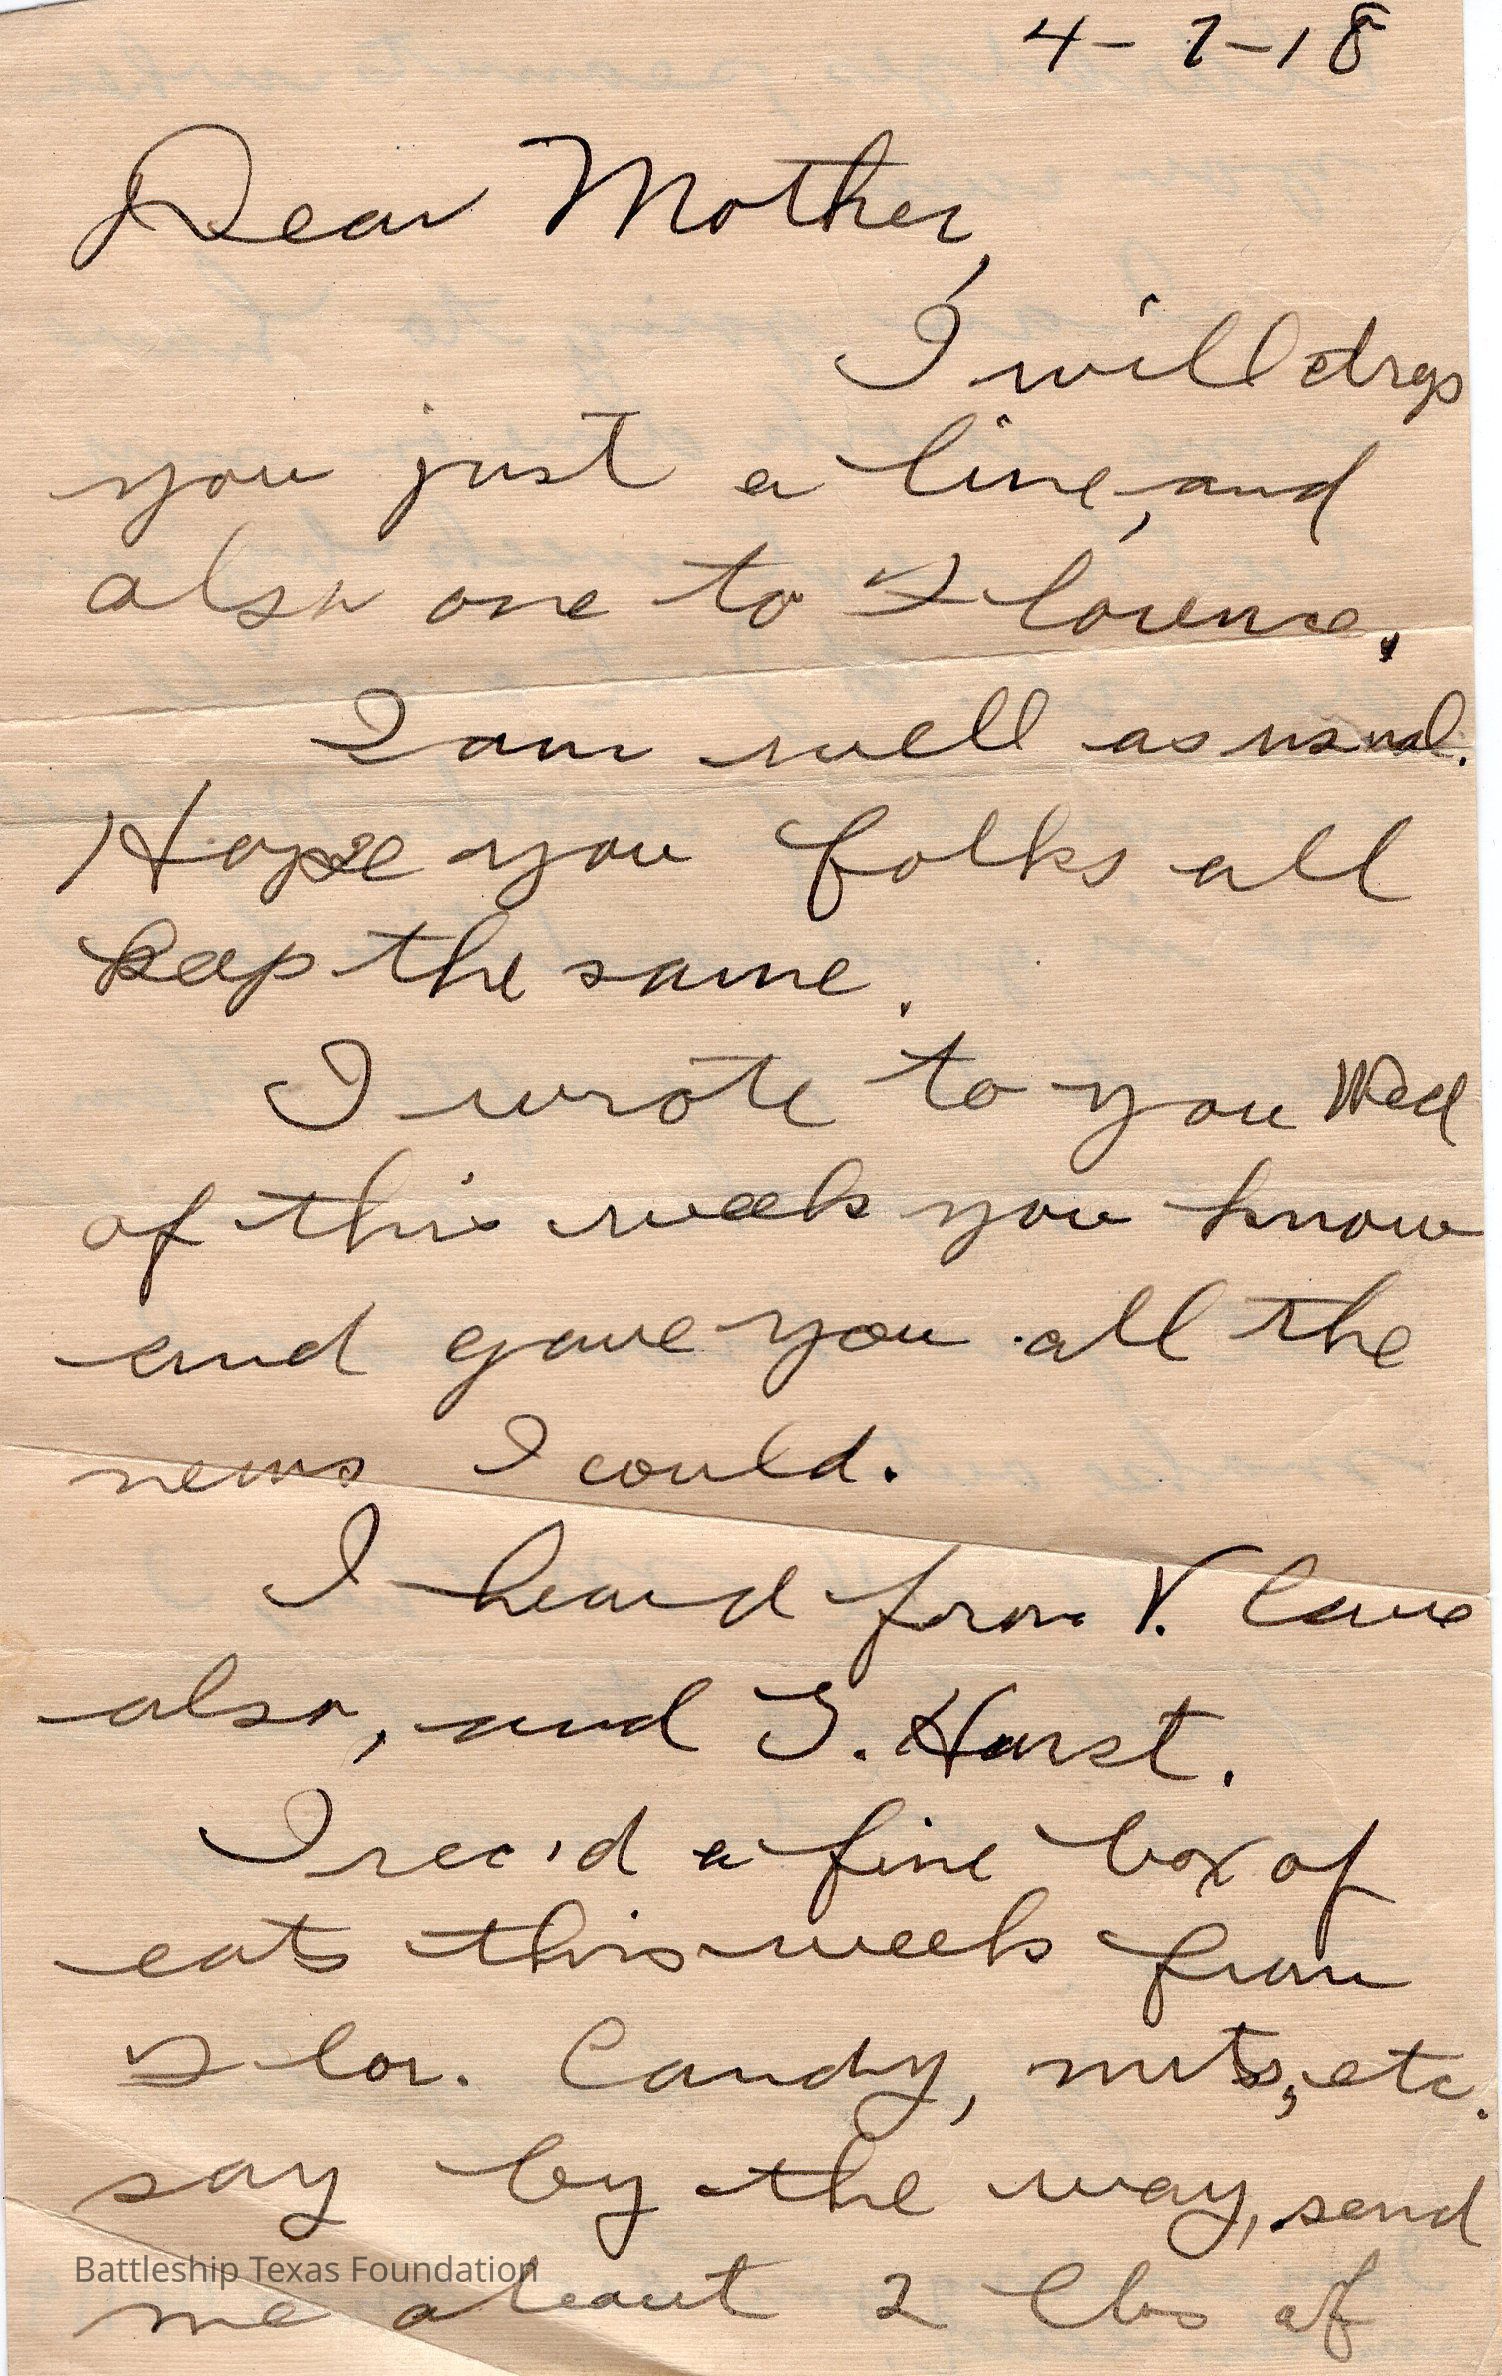 4-7-18
Dear Mother,
I will drop
you just a line, and
also one to Florence.
I am well as usual.
Hope you folks all
keep the same.
I wrote to you Wed
of this week you know
and gave you all the
news I could.
I heard from V.
also, and G. Hurst.
I rec'd a fine box of
eats this week from
Flor. Candy, nuts, etc.
say by the way, send
me about 2 lbs of
Battleship Texas Foundation